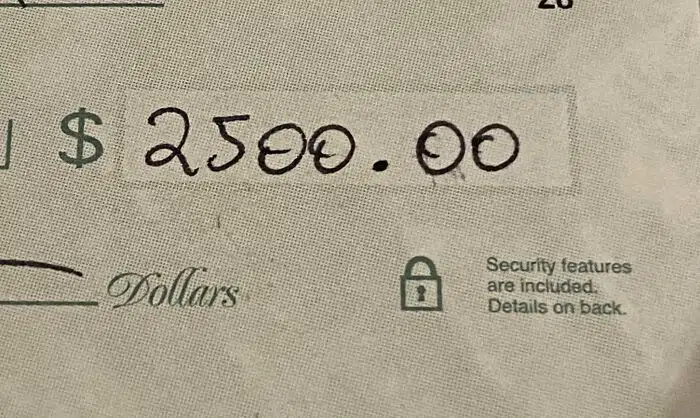 $ 2500.00
Dollars
Security features
are included.
Details on back.